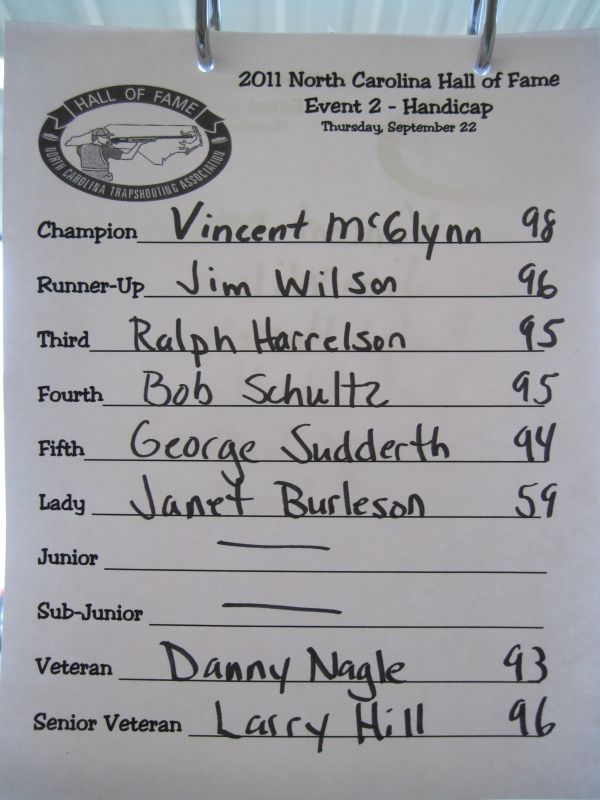 2011 North Carolina Hall of Fame
Event 2 - Handicap
Thursday, September 22
HALL OF FAME
NORTH CAROLINA TRAPSHOOTING ASSOCIATION
Champion Vincent McGlynn 98
Runner-Up Jim Wilson 96
Third Ralph Harrelson 95
Fourth Bob Schultz 95
Fifth George Sudderth 94
Lady Janet Burleson 59
Junior —
Sub-Junior —
Veteran Danny Nagle 93
Senior Veteran Larry Hill 96